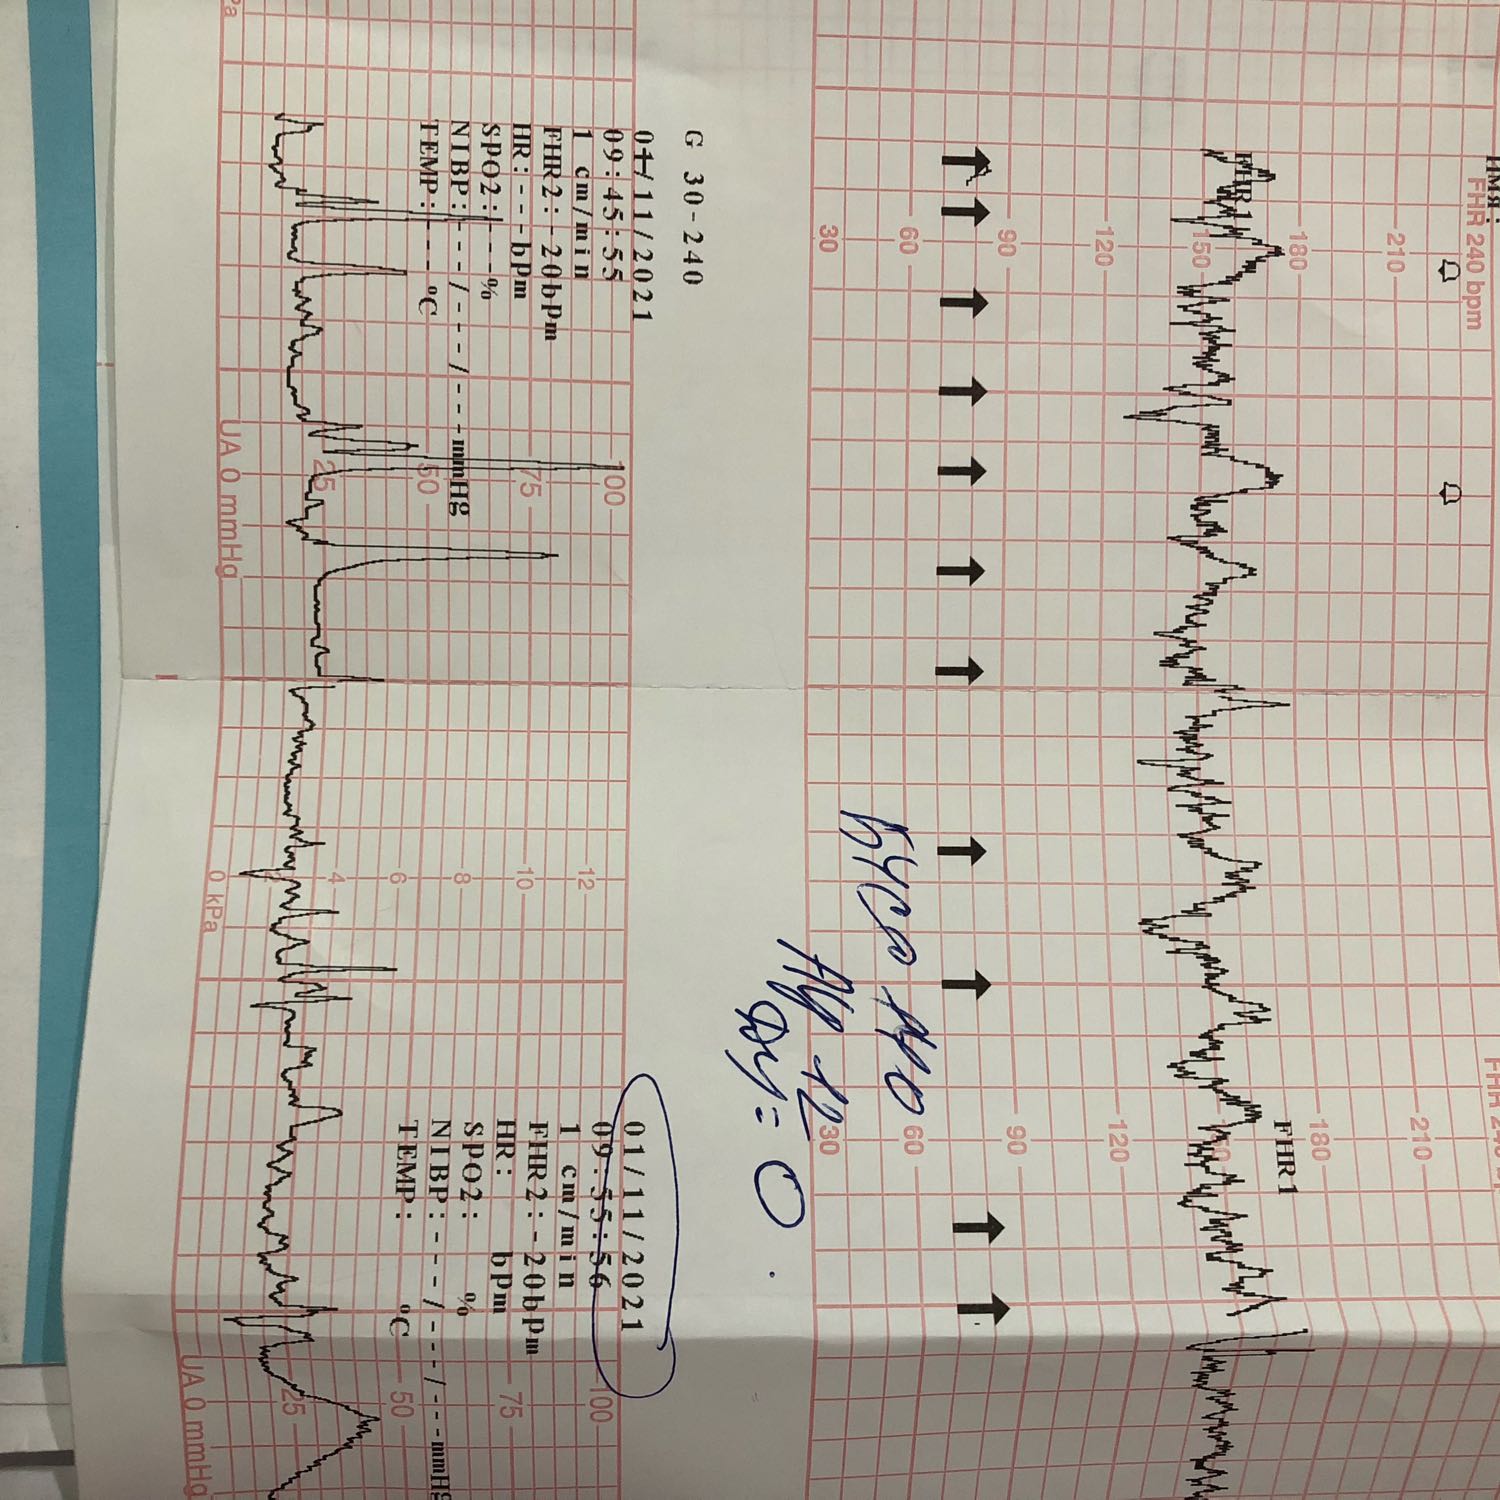 FHR 240 bpm
210
180
150
120
90
60
30
FHR1
FHR1
210
180
150
120
90
60
30
G 30-240
01/11/2021
09:45:55
1 cm/min
FHR2:-20bpm
HR:---bpm
SPO2:---%
NIBP:---/---/---mmHg
TEMP:----°C
100
75
50
25
UA 0 mmHg
12
10
8
6
4
2
0 kPa
01/11/2021
09:55:56
1 cm/min
FHR2:-20bpm
HR: bpm
SPO2: %
NIBP:---/---/---mmHg
TEMP: °C
100
75
50
25
UA 0 mmHg